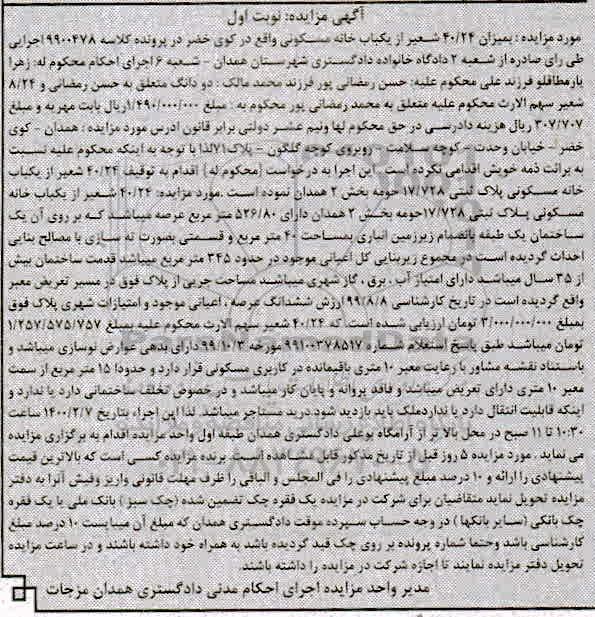 آگهی مزایده: نوبت اول
مورد مزایده : بمیزان ۴۰/۲۴ شعیر از یکباب خانه مسکونی واقع در کوی خضر در پرونده کلاسه ۹۹۰۰۴۷۸ اجرایی
طی رای صادره از شعبه ۲ دادگاه خانواده دادگستری شهرستان همدان - شعبه ۶ اجرای احکام محکوم له: زهرا
یارمطاقلو فرزند علی محکوم علیه: حسن رمضانی پور فرزند محمد مالک : دو دانگ متعلق به حسن رمضانی و ۸/۲۴
شعیر سهم الارث محکوم علیه متعلق به محمد رمضانی پور محکوم به : مبلغ ۱/۴۹۰/۰۰۰/۰۰۰ریال بابت مهریه و مبلغ
۳۰۷/۷۰۷ ریال هزینه دادرسی در حق محکوم لها ونیم عشر دولتی برابر قانون ادرس مورد مزایده : همدان - کوی
خضر - خیابان وحدت - کوچه سلامت - روبروی کوچه گلگون - پلاک۷۱لذا با توجه به اینکه محکوم علیه نسبت
به برائت ذمه خویش اقدامی نکرده است . این اجرا به درخواست [محکوم له] اقدام به توقیف ۴۰/۲۴ شعیر از یکباب
خانه مسکونی پلاک ثبتی ۱۷/۷۲۸ حومه بخش ۲ همدان نموده است .مورد مزایده: ۴۰/۲۴ شعیر از یکباب خانه
مسکونی پلاک ثبتی ۱۷/۷۲۸حومه بخش ۲ همدان دارای ۵۲۶/۸۰ متر مربع عرصه میباشد که بر روی آن یک
ساختمان یک طبقه باانضمام زیرزمین انباری بمساحت ۴۰ متر مربع و قسمتی بصورت ته سازی با مصالح بنایی
احداث گردیده است در مجموع زیربنایی کل اعیانی موجود در حدود ۳۴۵ متر مربع میباشد قدمت ساختمان بیش
از ۳۵ سال میباشد دارای امتیاز آب . برق . گاز شهری میباشد مساحت جزیی از پلاک فوق در مسیر تعریض معبر
واقع گردیده است در تاریخ کارشناسی ۹۹/۸/۸ ارزش ششدانگ عرصه . اعیانی موجود و امتیازات شهری پلاک فوق
بمبلغ ۳/۰۰۰/۰۰۰/۰۰۰ تومان ارزیابی شده است. که ۴۰/۲۴ شعیر سهم الارث محکوم علیه بمبلغ ۱/۲۵۷/۵۷۵/۷۵۷
تومان میباشد طبق پاسخ استعلام شماره ۹۹۱۰۰۳۷۸۵۱۷ مورخه ۹۹/۱۰/۳ دارای بدهی عوارض نوسازی میباشد و
باستناد نقشه مشاور با رعایت معبر ۱۰ متری باقیمانده در کاربری مسکونی قرار دارد و حدودا ۱۵ متر مربع از سمت
معبر ۱۰ متری دارای تعریض میباشد و فاقد پروانه و پایان کار میباشد و درخصوص تخلف ساختمانی دارد یا ندارد و
اینکه قابلیت انتقال دارد یا نداردملک باید بازدید شود.درید مستاجر میباشد. لذا این اجراء بتاریخ ۱۴۰۰/۲/۷ ساعت
۱۰:۳۰ تا ۱۱ صبح در محل بالا تر از آرامگاه بوعلی دادگستری همدان طبقه اول واحد مزایده اقدام به برگزاری مزایده
می نماید . مورد مزایده ۵ روز قبل از تاریخ مذکور قابل مشاهده است. برنده مزایده کسی است که بالاترین قیمت
پیشنهادی را ارائه و ۱۰ درصد مبلغ پیشنهادی را فی المجلس و الباقی را ظرف مهلت قانونی واریز وفیش آنرا به دفتر
مزایده تحویل نماید متقاضیان برای شرکت در مزایده یک فقره چک تضمین شده (چک سبز ) بانک ملی یا یک فقره
چک بانکی (سایر بانکها ) در وجه حساب سپرده موقت دادگستری همدان که مبلغ آن میبایست ۱۰ درصد مبلغ
کارشناسی باشد وحتما شماره پرونده بر روی چک قید گردیده باشد به همراه خود داشته باشند و در ساعت مزایده
تحویل دفتر مزایده نمایند تا اجازه شرکت در مزایده را داشته باشند.
مدیر واحد مزایده اجرای احکام مدنی دادگستری همدان مزجات